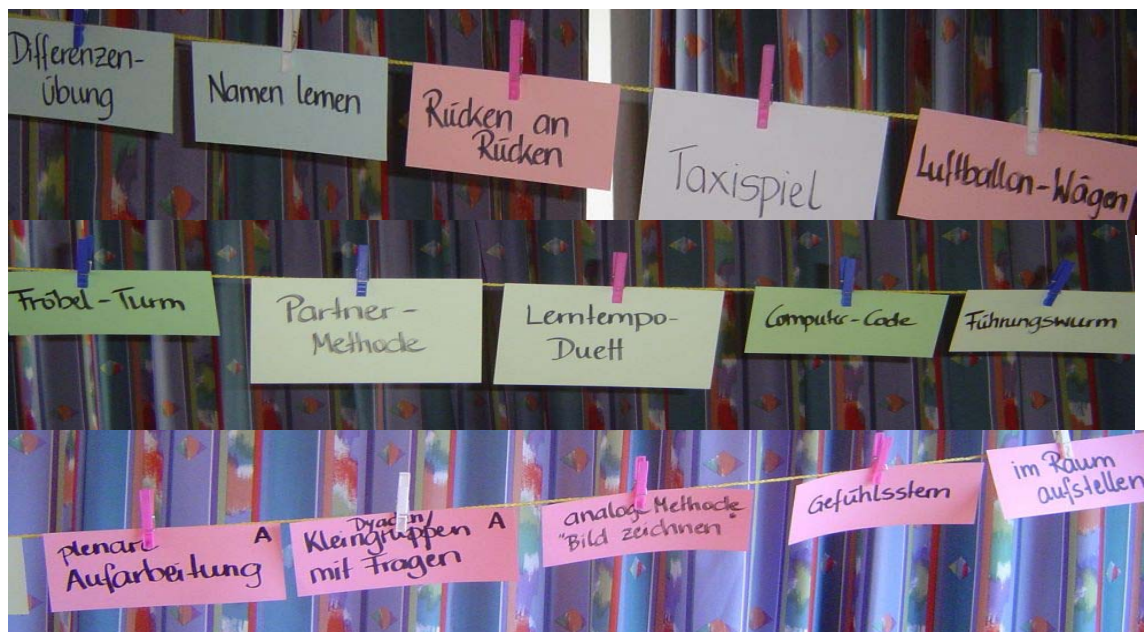 Differenzen-
übung
Namen lernen
Rücken an
Rücken
Taxispiel
Luftballon-Wägen
Fröbel-Turm
Partner-
Methode
Lerntempo-
Duett
Computer-Code
Führungswurm
plenare A
Aufarbeitung
Dyaden/ A
Kleingruppen
mit Fragen
analoge Methode
"Bild zeichnen"
Gefühlsstern
im Raum
aufstellen